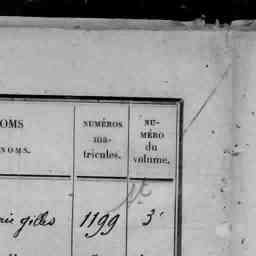 OMS
NOMS.
NUMÉROS
ma-
tricules.
NU-
MÉRO
du
volume.
gilles 1199 3